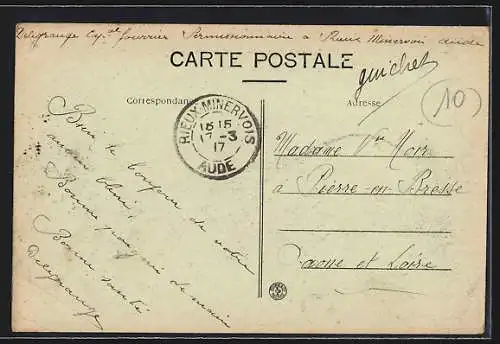 Delegrange Cap.al fourrier Permissionnaire à Rieux Minervois Aude
CARTE POSTALE
guichet
Correspondance
Adresse
10
RIEUX-MINERVOIS
15 15
17 - 3
17
AUDE
Bien le bonjour de votre
ami
Bonne poignée de main
Bonne santé
Delegrange
Madame Vve Noir
à Pierre-en-Bresse
Saone et Loire